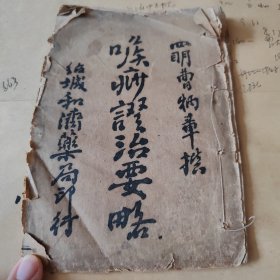 四明曹炳章撰
喉痧證治要略
紹城和濟藥局印行